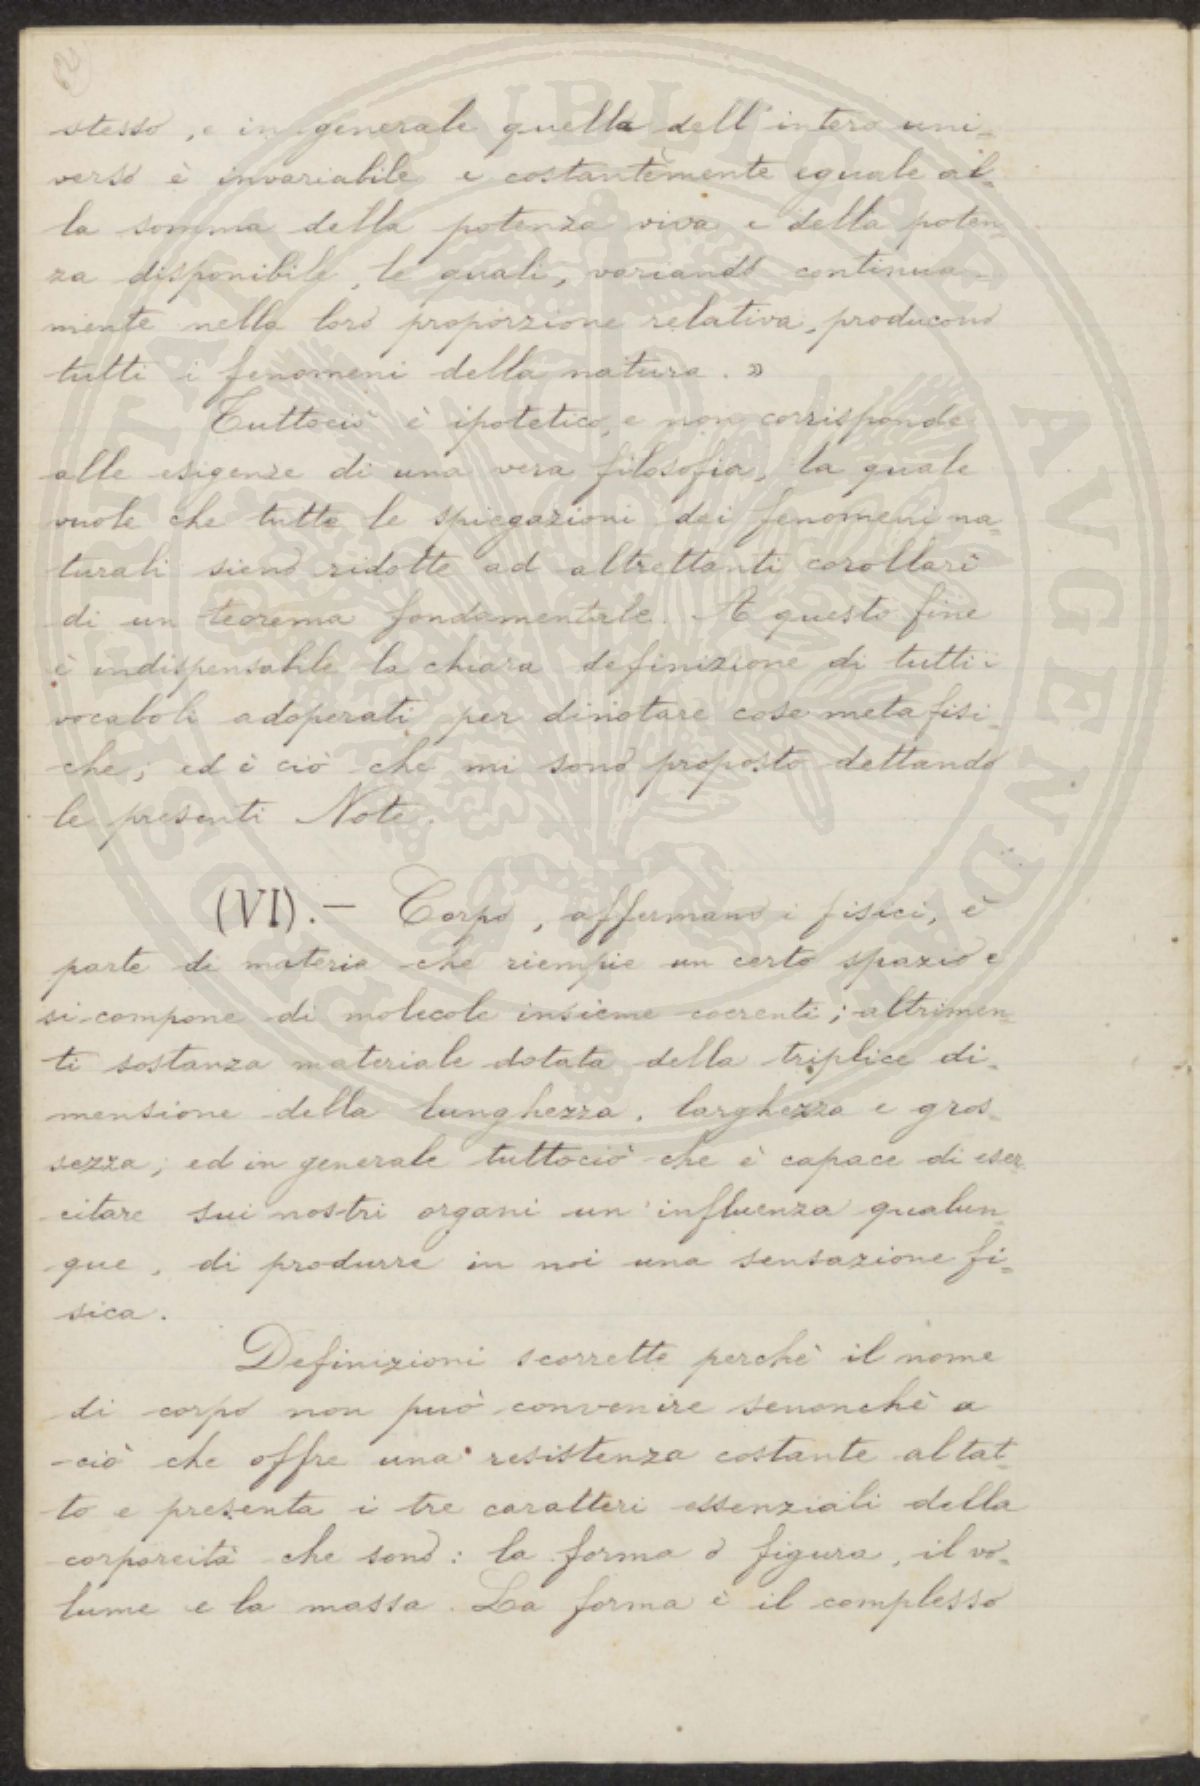 stesso, e in generale quella dell'intero uni-
verso è invariabile e costantemente eguale al-
la somma della potenza viva e della poten-
za disponibile, le quali, variando continua-
mente nella loro proporzione relativa, producono
tutti i fenomeni della natura. »
Tuttociò è ipotetico, e non corrisponde
alle esigenze di una vera filosofia, la quale
vuole che tutte le spiegazioni dei fenomeni na-
turali sieno ridotte ad altrettanti corollarî
di un teorema fondamentale. A questo fine
è indispensabile la chiara definizione di tutti i
vocaboli adoperati per dinotare cose metafisi-
che; ed è ciò che mi sono proposto dettando
le presenti Note.
(VI). — Corpo, affermano i fisici, è
parte di materia che riempie un certo spazio e
si compone di molecole insieme coerenti; altrimen-
ti sostanza materiale dotata della triplice di-
mensione della lunghezza, larghezza e gros-
sezza; ed in generale tuttociò che è capace di eser-
citare sui nostri organi un'influenza qualun-
que, di produrre in noi una sensazione fi-
sica.
Definizioni scorrette perchè il nome
di corpo non può convenire senonchè a
ciò che offre una resistenza costante al tat-
to e presenta i tre caratteri essenziali della
corporeità che sono: la forma o figura, il vo-
lume e la massa. La forma è il complesso